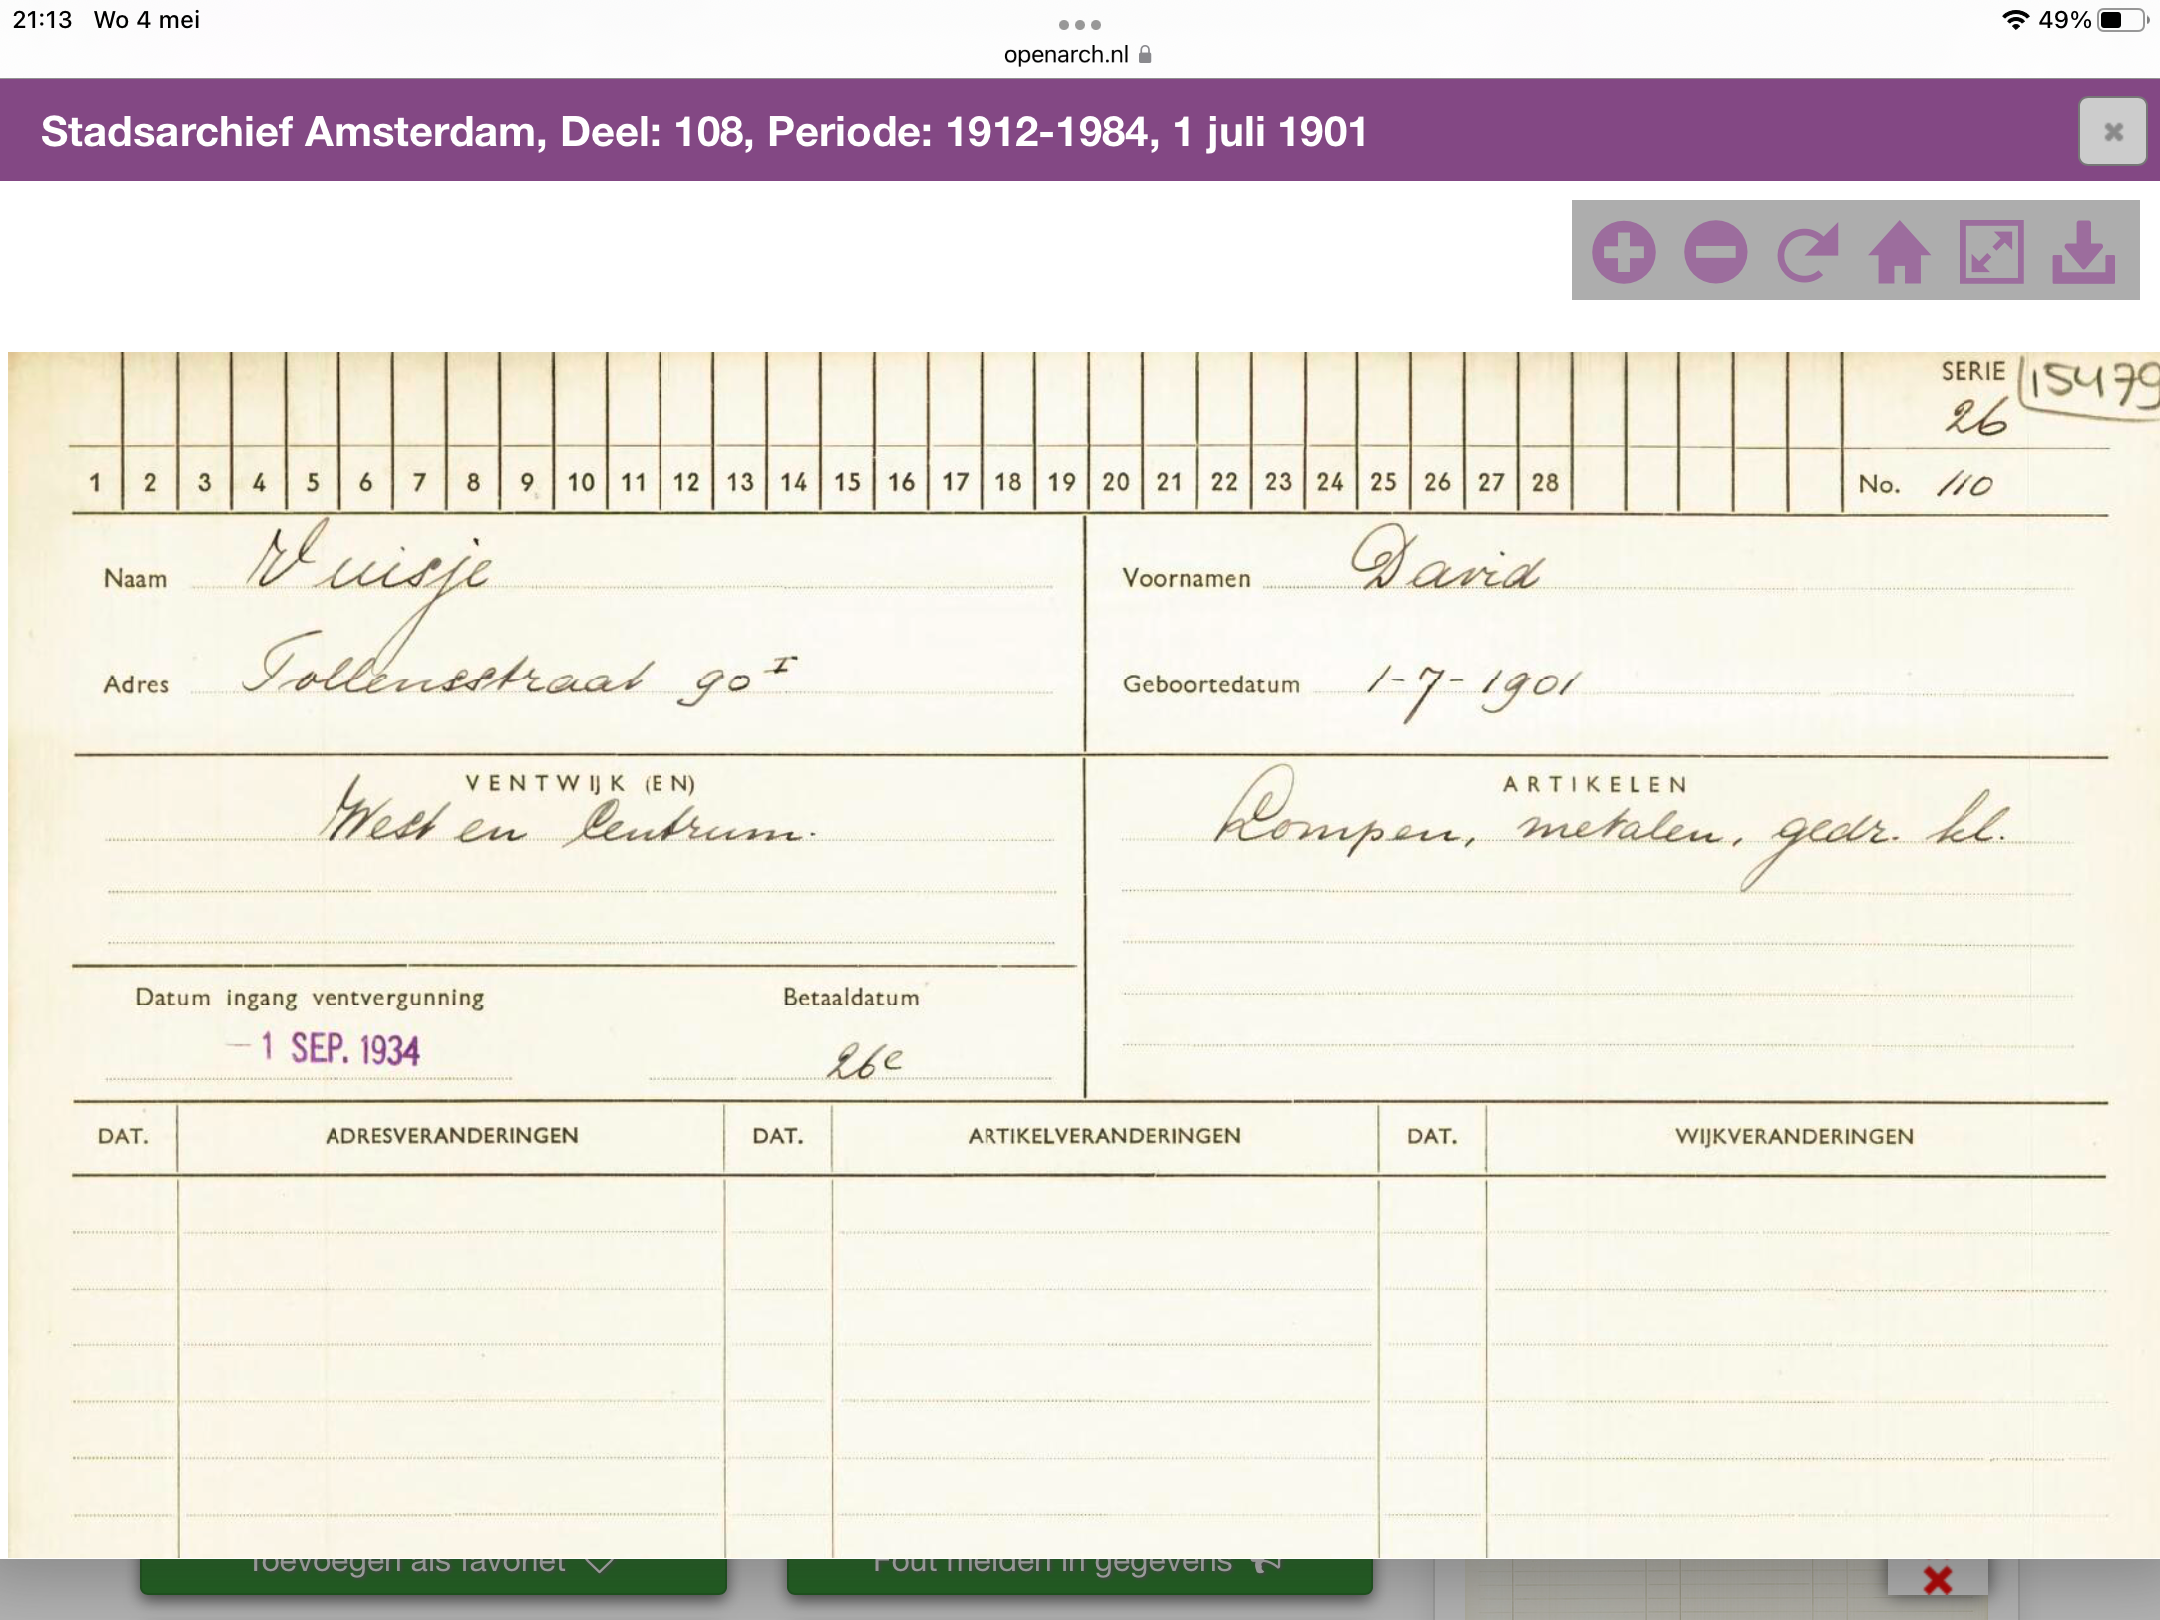 21:13 Wo 4 mei
49%
openarch.nl
Stadsarchief Amsterdam, Deel: 108, Periode: 1912-1984, 1 juli 1901
SERIE 15479
26
1 2 3 4 5 6 7 8 9 10 11 12 13 14 15 16 17 18 19 20 21 22 23 24 25 26 27 28 No. 110
Naam Vuisje Voornamen David
Adres Tollensstraat 90 I Geboortedatum 1-7-1901
VENTWIJK (EN) ARTIKELEN
West en Centrum. Lompen, metalen, gedr. kl.
Datum ingang ventvergunning Betaaldatum
-1 SEP. 1934 26e
DAT. ADRESVERANDERINGEN DAT. ARTIKELVERANDERINGEN DAT. WIJKVERANDERINGEN
Toevoegen als favoriet Fout melden in gegevens